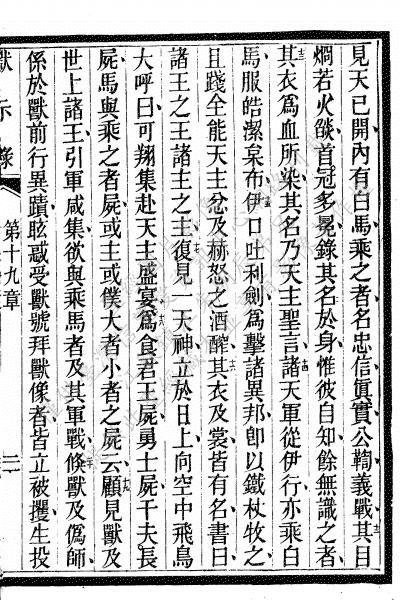 見天已開內有白馬乘之者名忠信眞實公鞫義戰其目
烱若火燄首冠多冕錄其名於身惟彼自知餘無識之者
其衣爲血所染其名乃天主聖言諸天軍從伊行亦乘白
馬服皓潔枲布伊口吐利劍爲擊諸異邦卽以鐵杖牧之
且踐全能天主忿及赫怒之酒醡其衣及裳皆有名書曰
諸王之王諸主之主復見一天神立於日上向空中飛鳥
大呼曰可翔集赴天主盛宴爲食君王屍勇士屍千夫長
屍馬與乘之者屍或主或僕大者小者之屍云顧見獸及
世上諸王引軍咸集欲與乘馬者及其軍戰倐獸及僞師
係於獸前行異蹟眩惑受獸號拜獸像者皆立被攫生投
默示錄 第十九章 二